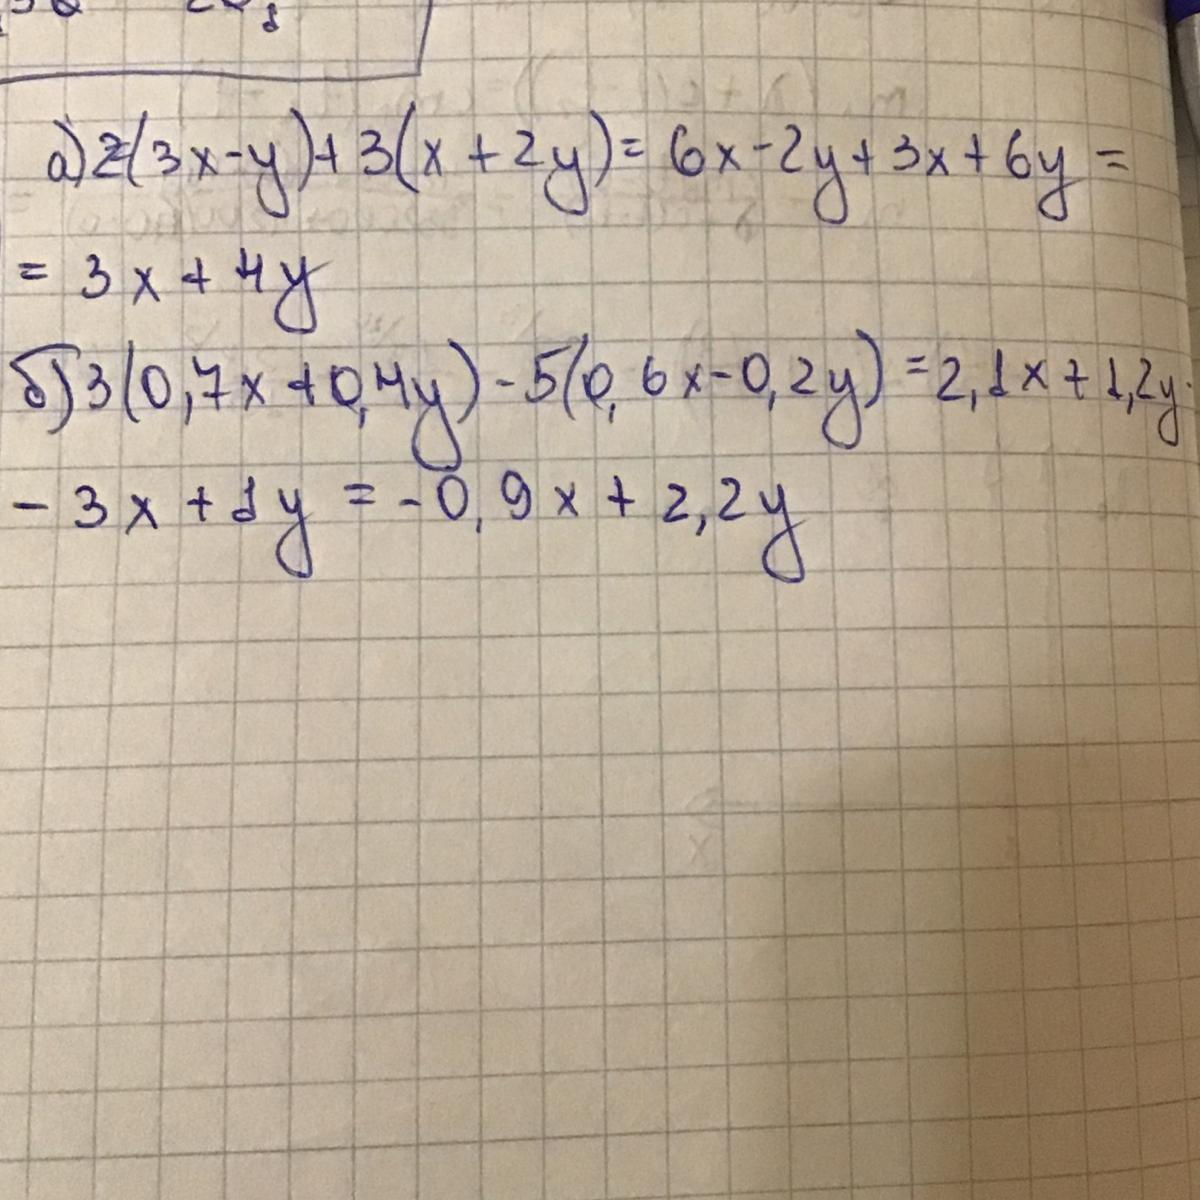 а) 2(3x-y)+3(x+2y)=6x-2y+3x+6y=
= 3x+4y
б) 3(0,7x+0,4y)-5(0,6x-0,2y)=2,1x+1,2y-
- 3x+1y=-0,9x+2,2y